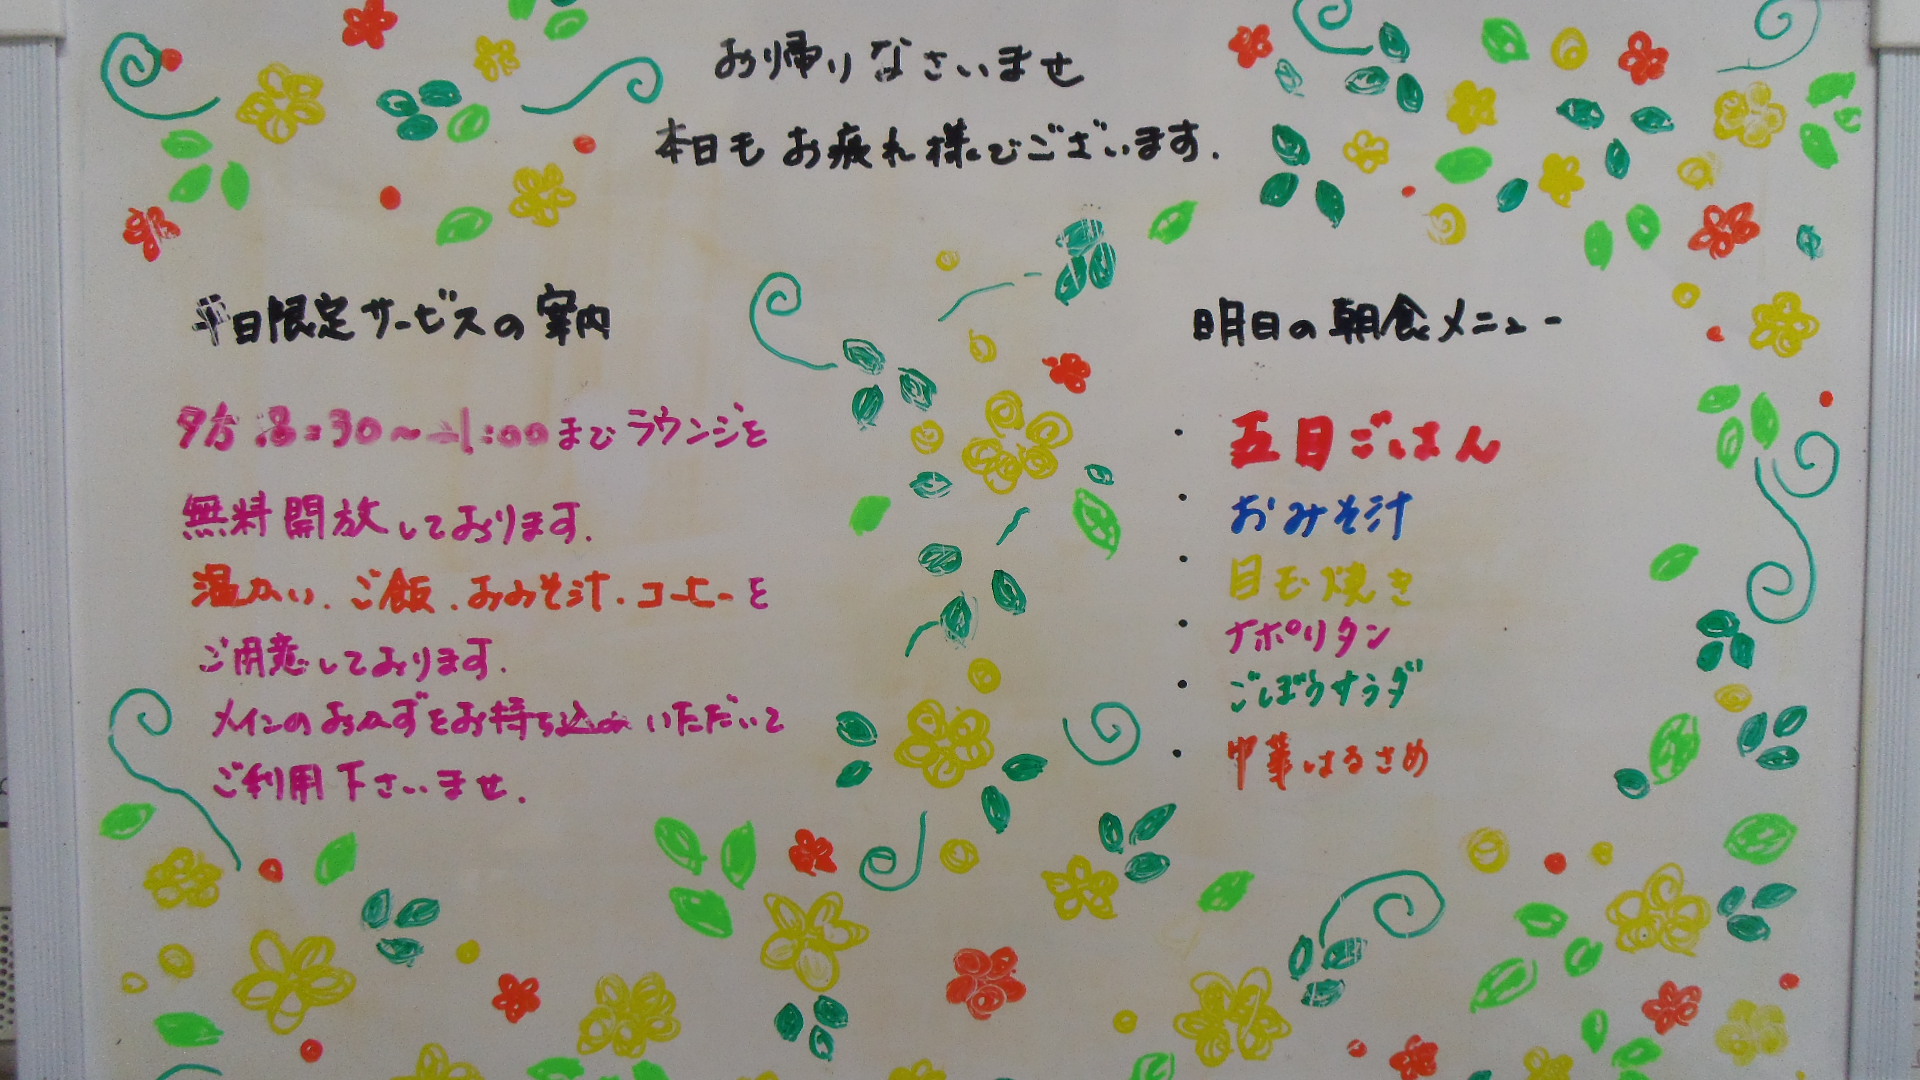 お帰りなさいませ
本日もお疲れ様でございます.
平日限定サービスの案内
夕方 :30～ 1:00までラウンジを
無料開放しております.
温かい.ご飯.おみそ汁.コーヒーを
ご用意しております.
メインのおかずをお持ち込みいただいて
ご利用下さいませ.
明日の朝食メニュー
・五目ごはん
・おみそ汁
・目玉焼き
・ナポリタン
・ごぼうサラダ
・中華はるさめ